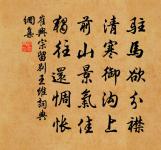 駐馬欲分襟
清寒御溝上
前山景氣佳
獨往還惆悵
崔興宗留別王維詞典
網集